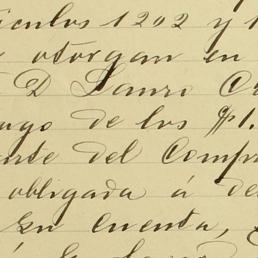 ículos 1202 y 1
otorgan en
D Lauro Cr
ugo de los $1.
ante del Compr
obligada á de
en cuenta,